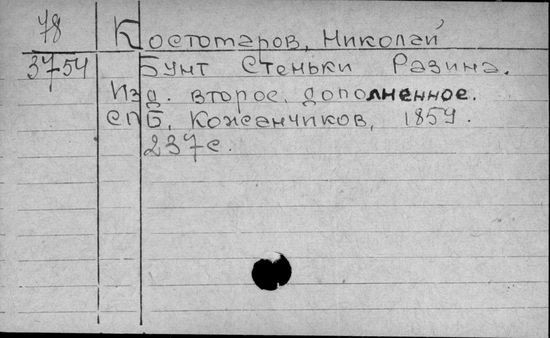 78
Костомаров, Николай
3754
Бунт Стеньки Разина.
Изд. второе, дополненное.
СПБ, Кожанчиков, 1859.
237с.